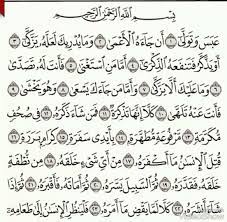 بِسْمِ ٱللَّهِ ٱلرَّحْمَٰنِ ٱلرَّحِيمِ
عَبَسَ وَتَوَلَّىٰٓ ١ أَن جَآءَهُ ٱلْأَعْمَىٰ ٢ وَمَا يُدْرِيكَ لَعَلَّهُۥ يَزَّكَّىٰٓ ٣
أَوْ يَذَّكَّرُ فَتَنفَعَهُ ٱلذِّكْرَىٰٓ ٤ أَمَّا مَنِ ٱسْتَغْنَىٰ ٥ فَأَنتَ لَهُۥ تَصَدَّىٰ
٦ وَمَا عَلَيْكَ أَلَّا يَزَّكَّىٰ ٧ وَأَمَّا مَن جَآءَكَ يَسْعَىٰ ٨ وَهُوَ يَخْشَىٰ
٩ فَأَنتَ عَنْهُ تَلَهَّىٰ ١٠ كَلَّآ إِنَّهَا تَذْكِرَةٌ ١١ فَمَن شَآءَ ذَكَرَهُۥ ١٢ فِى صُحُفٍ
مُّكَرَّمَةٍ ١٣ مَّرْفُوعَةٍ مُّطَهَّرَةٍۭ ١٤ بِأَيْدِى سَفَرَةٍ ١٥ كِرَامٍۭ بَرَرَةٍ ١٦
قُتِلَ ٱلْإِنسَٰنُ مَآ أَكْفَرَهُۥ ١٧ مِنْ أَىِّ شَىْءٍ خَلَقَهُۥ ١٨ مِن نُّطْفَةٍ
خَلَقَهُۥ فَقَدَّرَهُۥ ١٩ ثُمَّ ٱلسَّبِيلَ يَسَّرَهُۥ ٢٠ ثُمَّ أَمَاتَهُۥ فَأَقْبَرَهُۥ ٢١ ثُمَّ إِذَا
شَآءَ أَنشَرَهُۥ ٢٢ كَلَّا لَمَّا يَقْضِ مَآ أَمَرَهُۥ ٢٣ فَلْيَنظُرِ ٱلْإِنسَٰنُ إِلَىٰ طَعَامِهِۦٓ